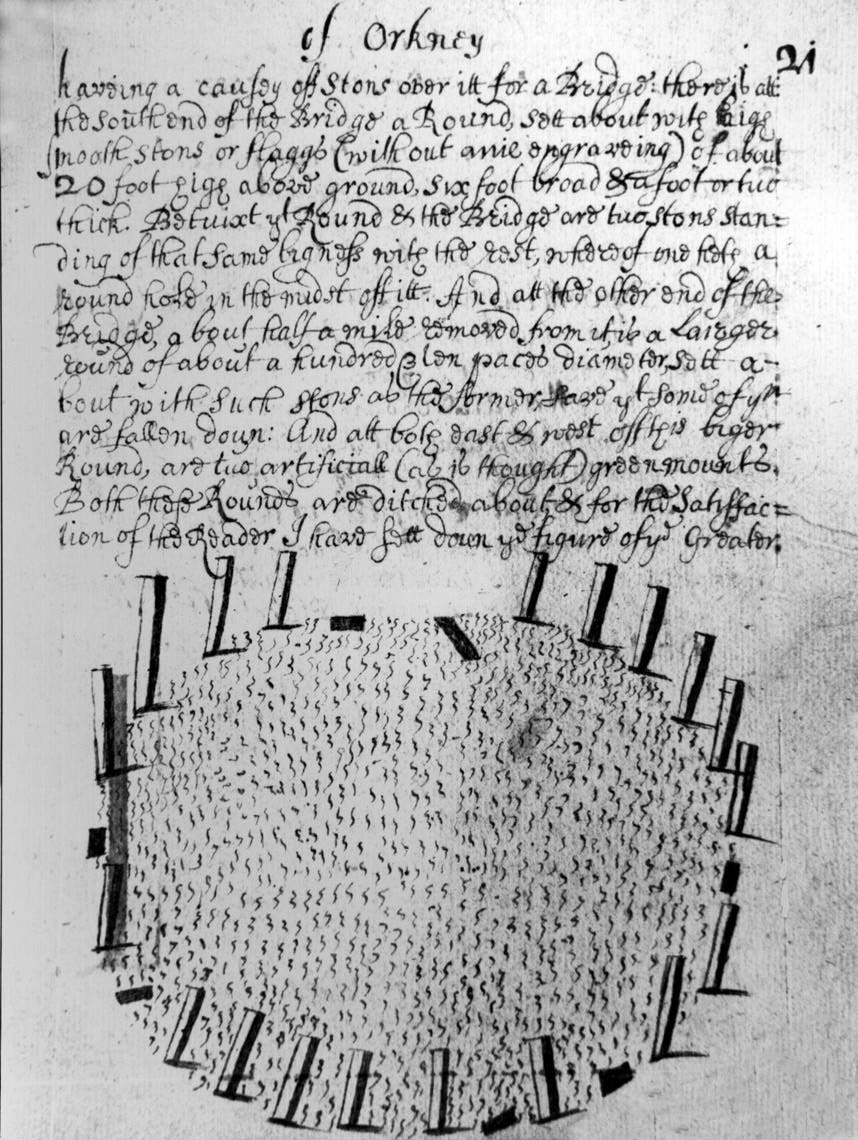 of Orkney
21
haveing a causey off stons over itt for a Bridge: there is att
the south end of the Bridge a Round, sett about with high
smooth stons or flaggs (without anie engraveing) of about
20 foot high above ground, six foot broad & a foot or tuo
thick. Betuixt yt Round & the Bridge are tuo stons stan=
ding of that same bigness with the rest, whereof one heth a
round hole in the midst off itt. And att the other end of the
Bridge, about half a mile removed from it is a Larger
round of about a hundred & ten paces diameter, sett a-
bout with such stons as the former, save yt some of ym
are fallen doun: And att both east & west off this biger
Round, are tuo artificiall (as is thought) green mounts.
Both these Rounds are ditched about, & for the Satisfac=
tion of the Reader I have sett doun ye figure of ye Greater.